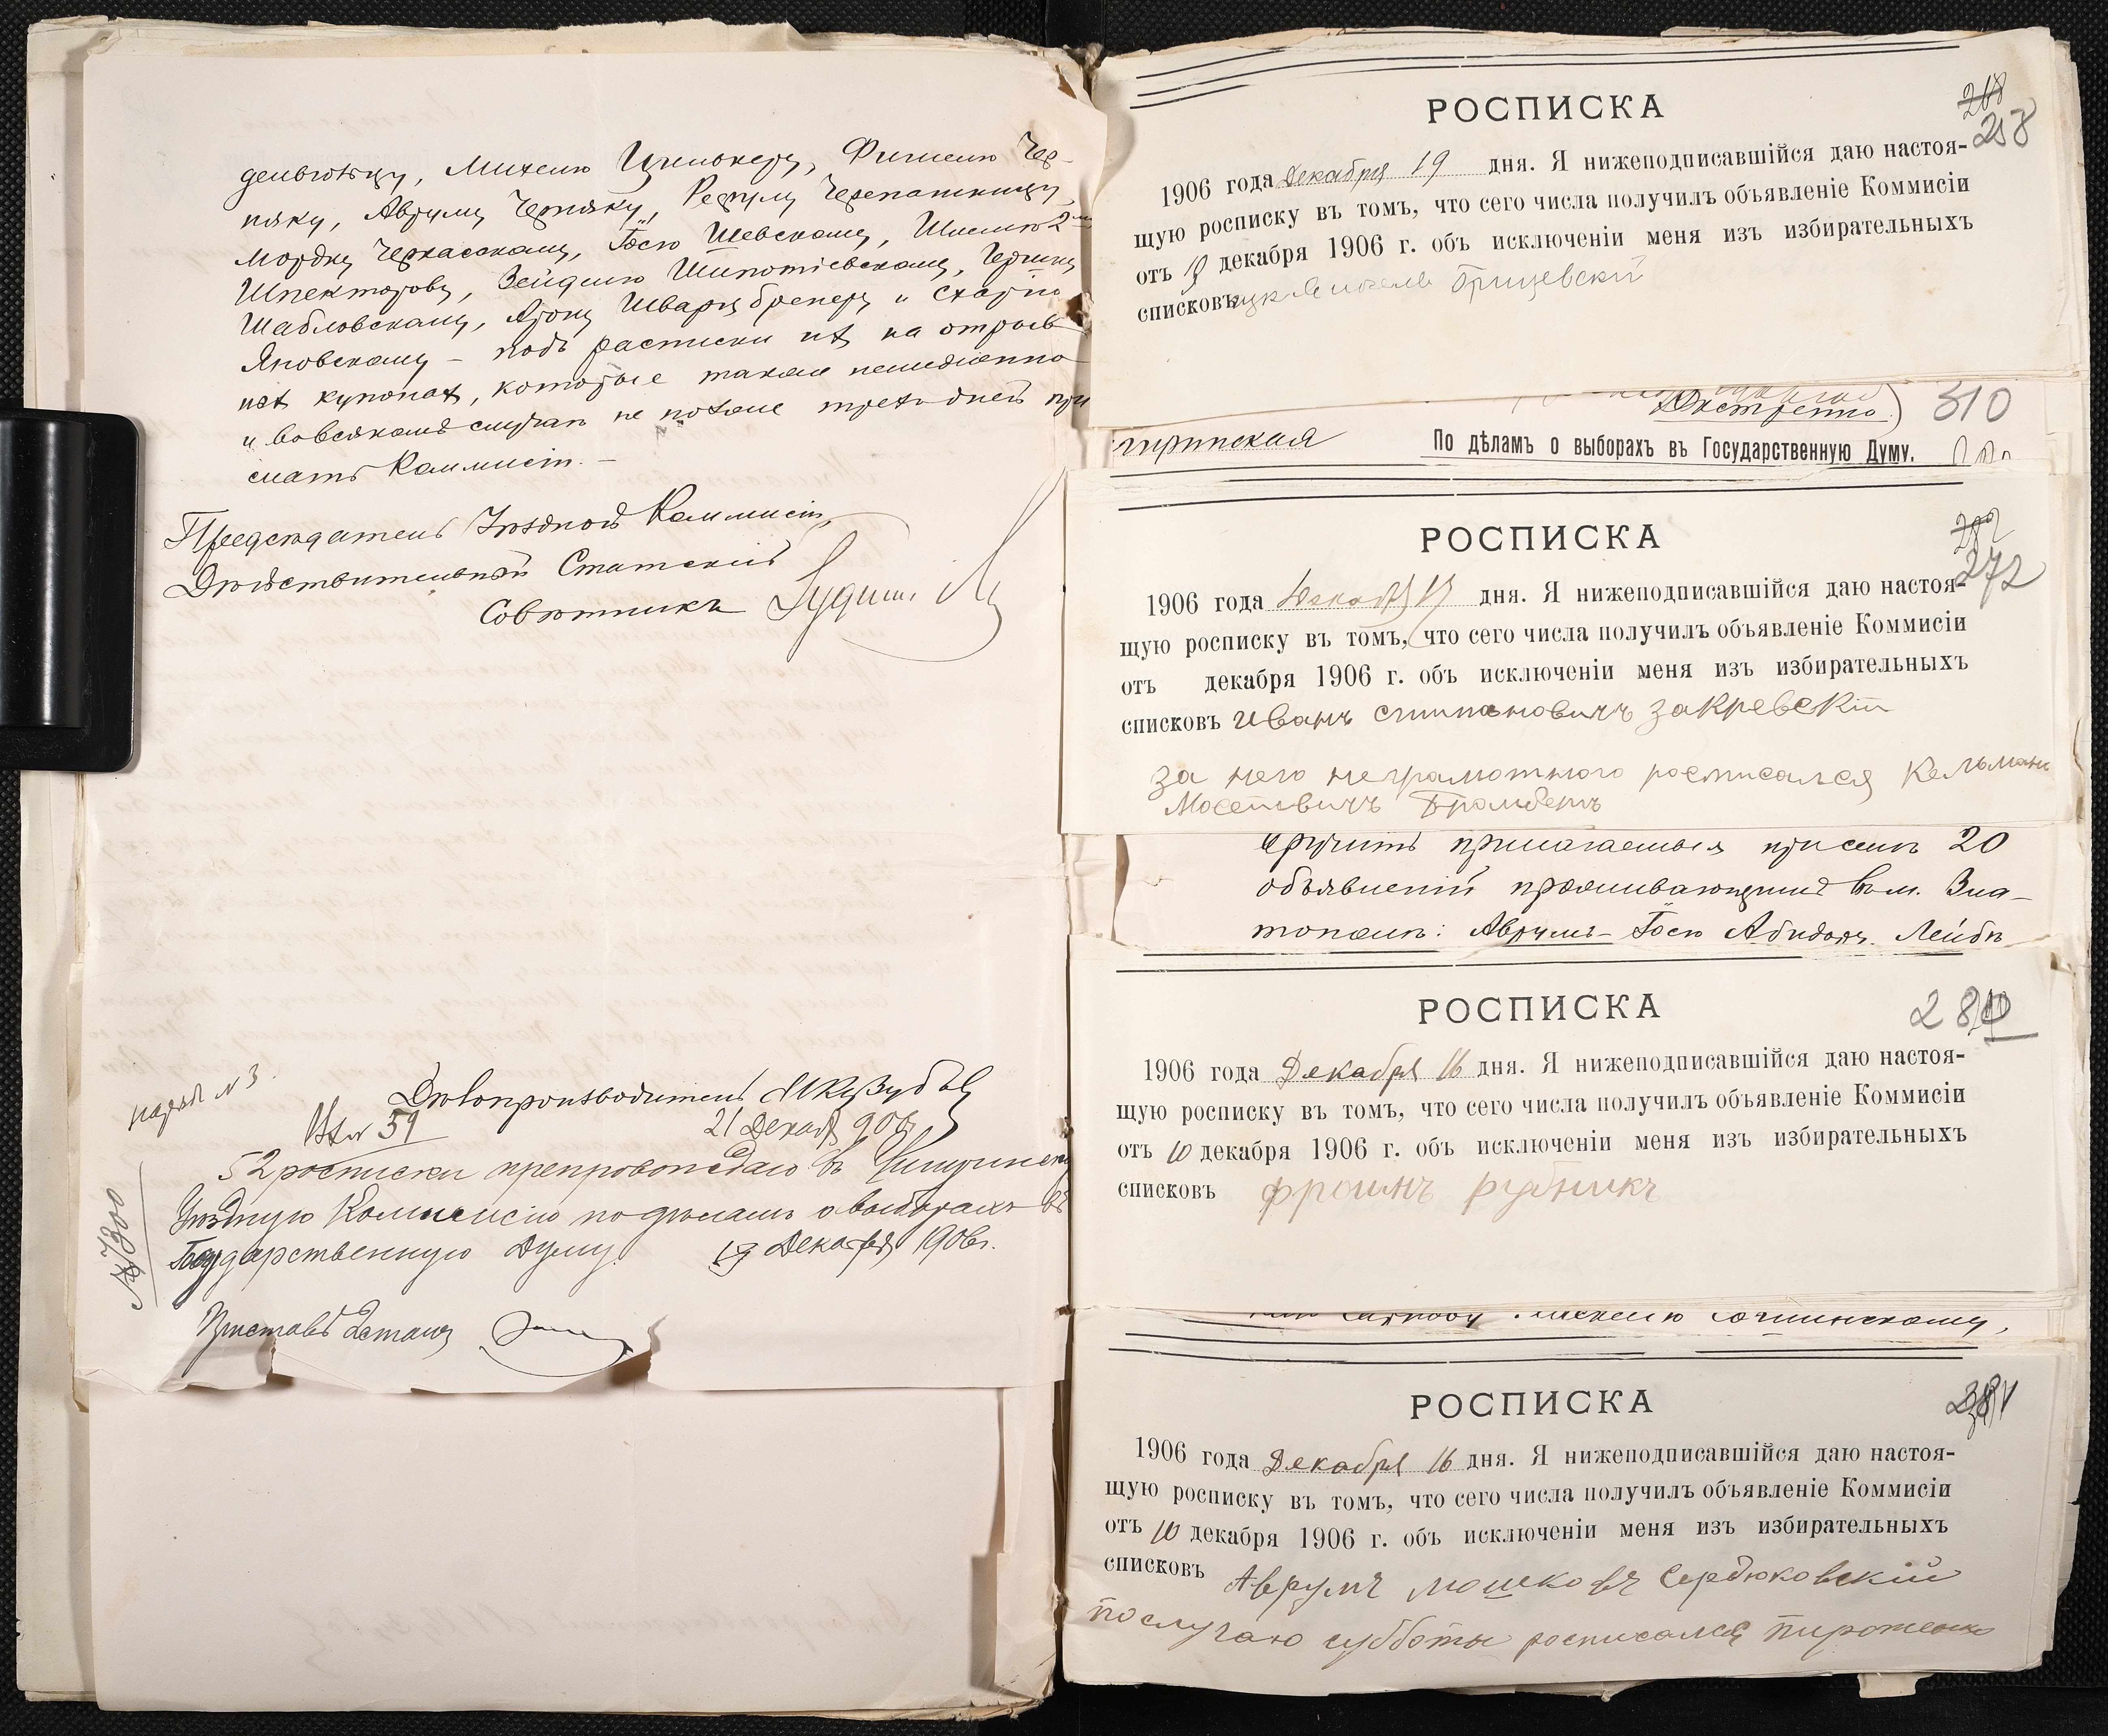 дельвотцу, Михелю Цмиокеру, Фишелю Чер-
няку, Авруму Черняку, Рефулу Черепашницу,
Мордку Черкасскому, Госю Шевскому, Шлемю 2
Шпекторову, Зейделю Шипотіевскому, Герш
Шабловскому, Арону Шварцбренеру и Схарію
Яновскому – подъ расписки ихъ на отрыв
ихъ купонахъ, которые также немедленно
и вовсякомъ случаѣ не позже трехъ дней при
слать Коммисіи. –
Предсѣдатель Уѣздной Коммисіи,
Дѣйствительный Статскій
Совѣтникъ
нарядъ № 3
Дѣлопроизводитель
Вх № 59 21 Декаб 906
52 росписки препровождаю въ Чигиринску
Уѣздную Коммисію по дѣламъ о выборахъ въ
Государственную Думу. 19 Декабря 1906 г.
№ 7300
Приставъ 2 стана
РОСПИСКА
268
258
1906 года Декабря 19 дня. Я нижеподписавшійся даю настоя-
щую росписку въ томъ, что сего числа получилъ объявленіе Коммисіи
отъ декабря 1906 г. объ исключеніи меня изъ избирательныхъ
списковъ Грищевскій
Экстренно) 310
гиринская По дѣламъ о выборахъ въ Государственную Думу.
РОСПИСКА
272
1906 года дня. Я нижеподписавшійся даю настоя-
щую росписку въ томъ, что сего числа получилъ объявленіе Коммисіи
отъ декабря 1906 г. объ исключеніи меня изъ избирательныхъ
списковъ Иванъ степановичъ закревскій
за него неграмотного росписался Кельманъ
Мосеиевичъ Бромберъ
вручить прилагаемыя при семъ 20
объявленій проживающимъ въ м. Зла-
тополѣ: Аврумъ-Госю Абидору Лейбѣ
РОСПИСКА
280
1906 года Декабря 16 дня. Я нижеподписавшійся даю настоя-
щую росписку въ томъ, что сего числа получилъ объявленіе Коммисіи
отъ 10 декабря 1906 г. объ исключеніи меня изъ избирательныхъ
списковъ фроимъ рубникъ
РОСПИСКА
281
1906 года Декабря 16 дня. Я нижеподписавшійся даю настоя-
щую росписку въ томъ, что сего числа получилъ объявленіе Коммисіи
отъ 10 декабря 1906 г. объ исключеніи меня изъ избирательныхъ
списковъ Аврумъ мошковъ Сердюковскій
по случаю субботы росписался пироженко